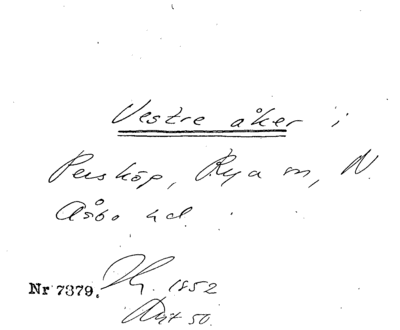 Vestre åker i
Perskóp, Rya sn, N.
Åsbo hd.
Nr 7379. 1852
Avt 50.